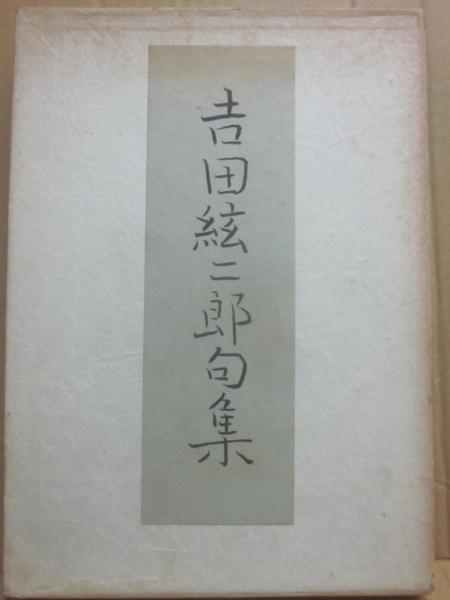 吉田絃二郎句集